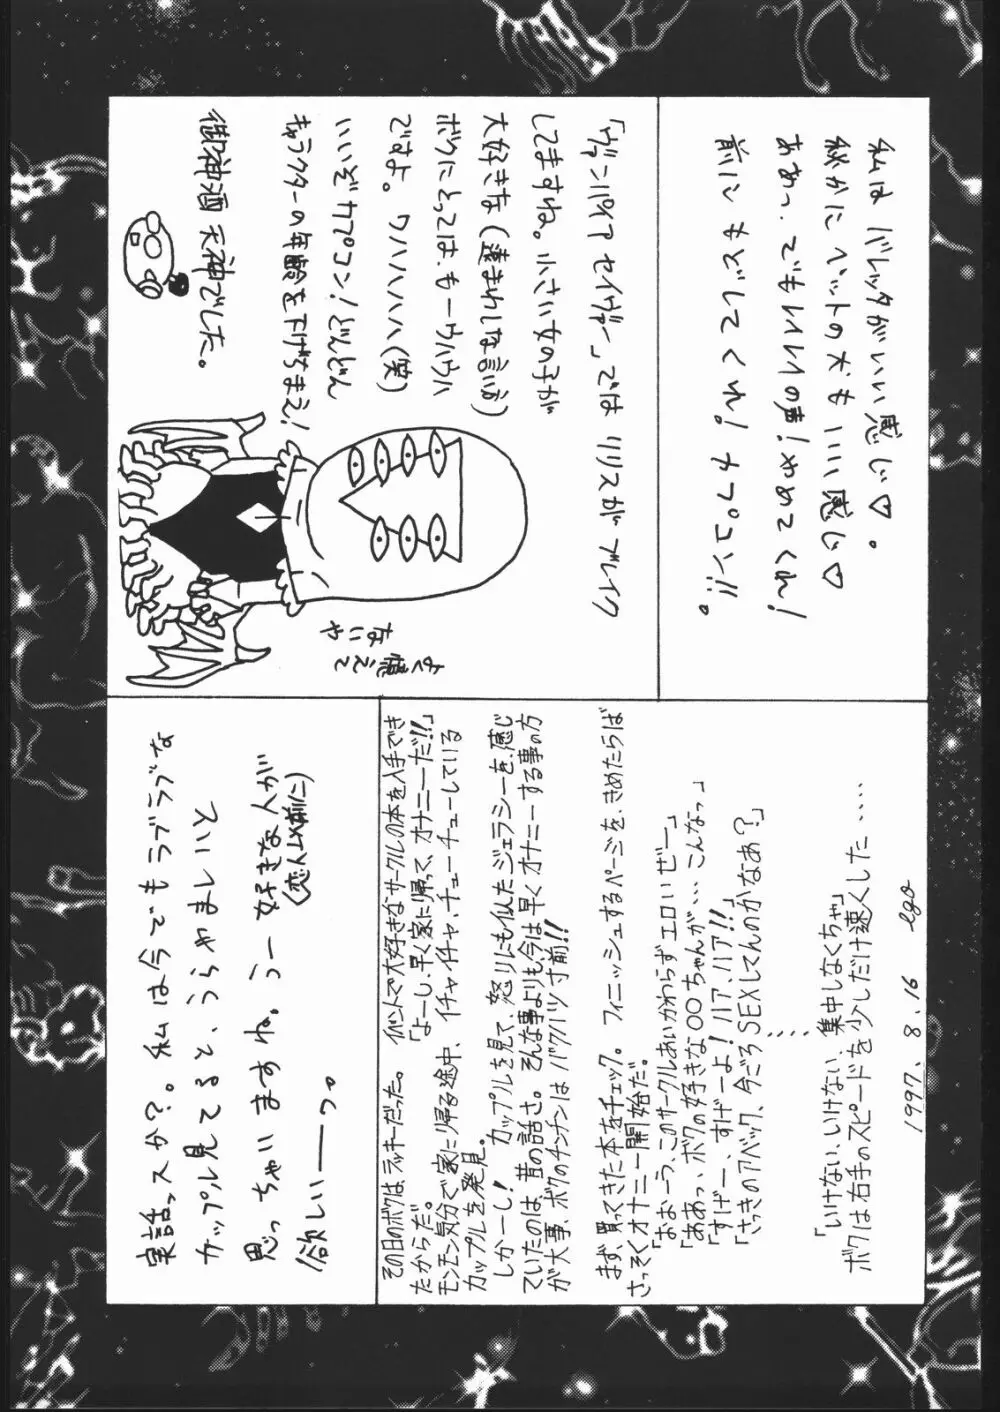 私は バレッタがいい感じ♡。
秘かにペットの犬も いい感じ♡
前に もどしてくれ！ カプ
「ヴァンパイア セイヴァー」では リリスが ブレイク
してますね。小さい女の子が
大好きな（遠まわしな言い方）
ボクにとっては、も一ウハウハ
ですよ。ワハハハハハ（笑）
いいぞカプコン！どんどん
キャラクターの年齢を下げちまえ！
御神酒 天神でした。
よく憶えて
ないや
その日のボクは、ラッキーだった。 イベントで大好きなサークルの本を入手でき
たからだ。 「よーし、早く家に帰って、オナニーだ!!」
モンモン気分で家に帰る途中、イチャイチャ、チューチューしている
カップルを発見。
しかーし！ カップルを見て、怒りにも似たジェラシーを、感じ
ていたのは、昔の話さ。そんな事よりも、今は、早くオナニーする事の方
が大事、ボクのチンチンはバクハツ寸前!!
まず、買ってきた本をチェック。 フィニッシュするページを、きめたらば
さっそくオナニー開始だ。
「おぉーう、このサークルあいかわらずエロいぜー」
「ああっ、ボクの好きな○○ちゃんが、、、こんなっ」
「すげー、すげーよ！ハア、ハア!!」
「さっきのアベック、今ごろSEXしてんのかなあ？」
「いけない、いけない、集中しなくちゃ」
ボクは右手のスピードを少しだけ速くした・・・・
1997.8.16 ego
実話ッスか？。私は今でもラブラブな
カップル見てると、うらやましいいと
思っちゃいますね。うー好きな人が
（恋人以前に）
欲しい――っ。